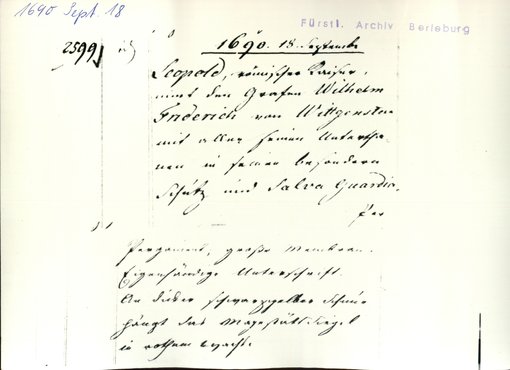 1690 Sept. 18
Fürstl. Archiv Berleburg
2599
1690. 18. Septembr
Leopold, römischer Kaiser,
nimt den Grafen Wilhelm
Friderich von Wittgenstein
mit allen seinen Untertha-
nen in seinen besondern
Schutz und Salva Guardia.
Per
Pergament, große Membran.
Eigenhändige Unterschrift.
An dicker schwarzgelber Schnur
hängt das Magestätssiegel
in rothem Wachs.